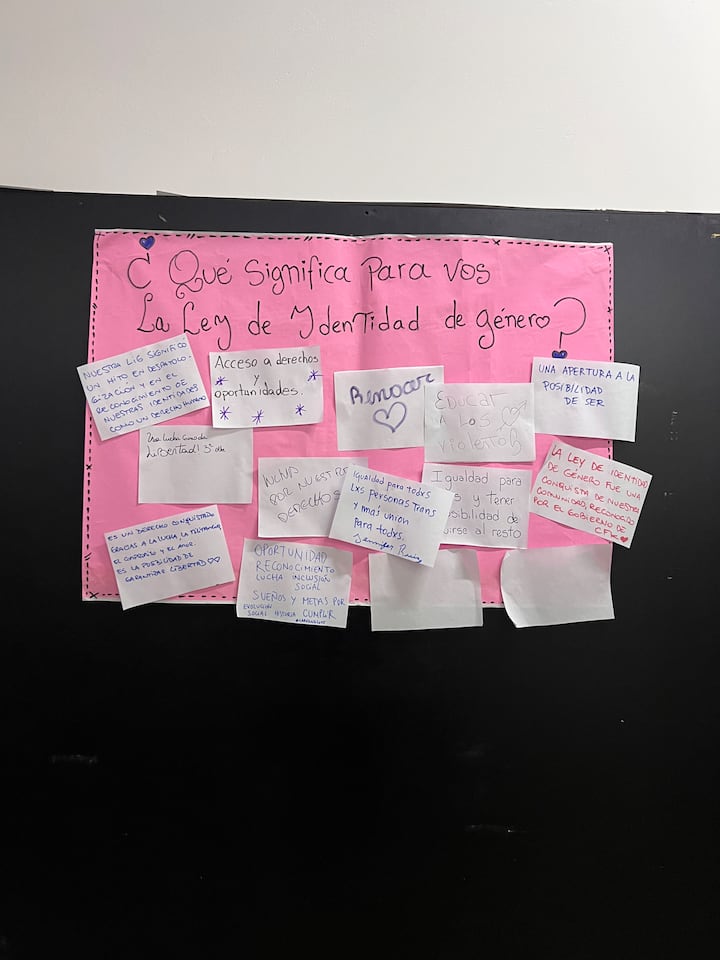 ¿Qué significa Para vos
La Ley de Identidad de género?
NUESTRA LIG SIGNIFICÓ
UN HITO EN DESPATOLO-
GIZACIÓN Y EN EL
RECONOCIMIENTO DE
NUESTRAS IDENTIDADES
COMO UN DERECHO HUMANO
Acceso a derechos
y
oportunidades.
Renacer
EDUCAR
A LOS
VIOLENTOS
UNA APERTURA A LA
POSIBILIDAD
DE SER
Una Lucha
Libertad!
LUCHA
POR NUESTROS
DERECHOS
Igualdad para todxs
Lxs personas Trans
y mai union
Para todxs,
Igualdad para
y tener
de
al resto
LA LEY DE IDENTIDAD
DE GÉNERO FUE UNA
CONQUISTA DE NUESTRA
COMUNIDAD, RECONOCIDO
POR EL GOBIERNO DE
CFK
ES UN DERECHO CONQUISTADO
GRACIAS A LA LUCHA, LA MILITANCIA,
EL Y EL AMOR.
ES LA POSIBILIDAD DE
GARANTIZAR LIBERTAD
OPORTUNIDAD
RECONOCIMIENTO
LUCHA INCLUSIÓN
SOCIAL
SUEÑOS Y METAS POR
EVOLUCION
SOCIAL HISTORIA CUMPLIR